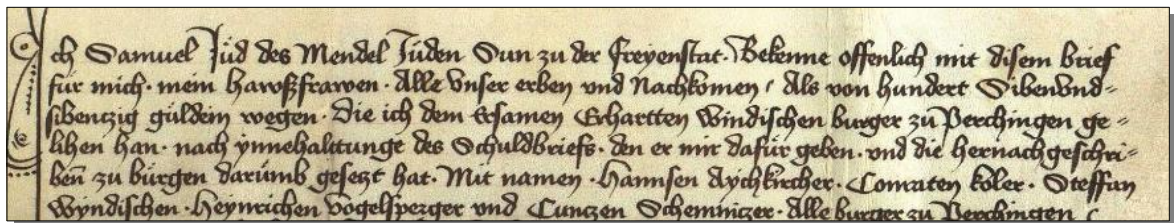 Ich Samuel Jüd des Mendel Juden Sun zu der Freyenstat· Bekenne offenlich mit disem brief
für mich· mein hawßfrawen· Alle Vnser erben vnd Nachkomen / Als von hundert Sibenvnd=
sibenczig guldein wegen· Die ich dem Ersamen Erhartten Windischen burger zu Perchingen ge=
lihen han· nach ynnehalttunge des Schuldbriefs· den er mir dafür geben· vnd die hernach geschri=
ben zu bürgen darümb gesetzt hat· Mit namen· Hannsen Aychkircher· Conraten koler· Steffan
Wyndischen· Heynrichen Vogelsperger vnd Cunczen Scheminczer· Alle burger zu Perchingen